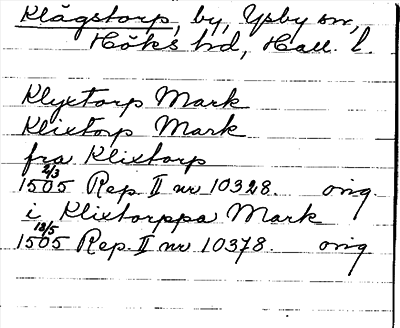 Klågstorp, by, Ysby sn,
Höks hd, Hall. l.
Klyxtorp Mark
Klixtorp Mark
fra Klixtorp
2/3
1505 Rep. II nr 10328. orig
i Klixtorppa Mark
13/5
1505 Rep. II nr 10378. orig